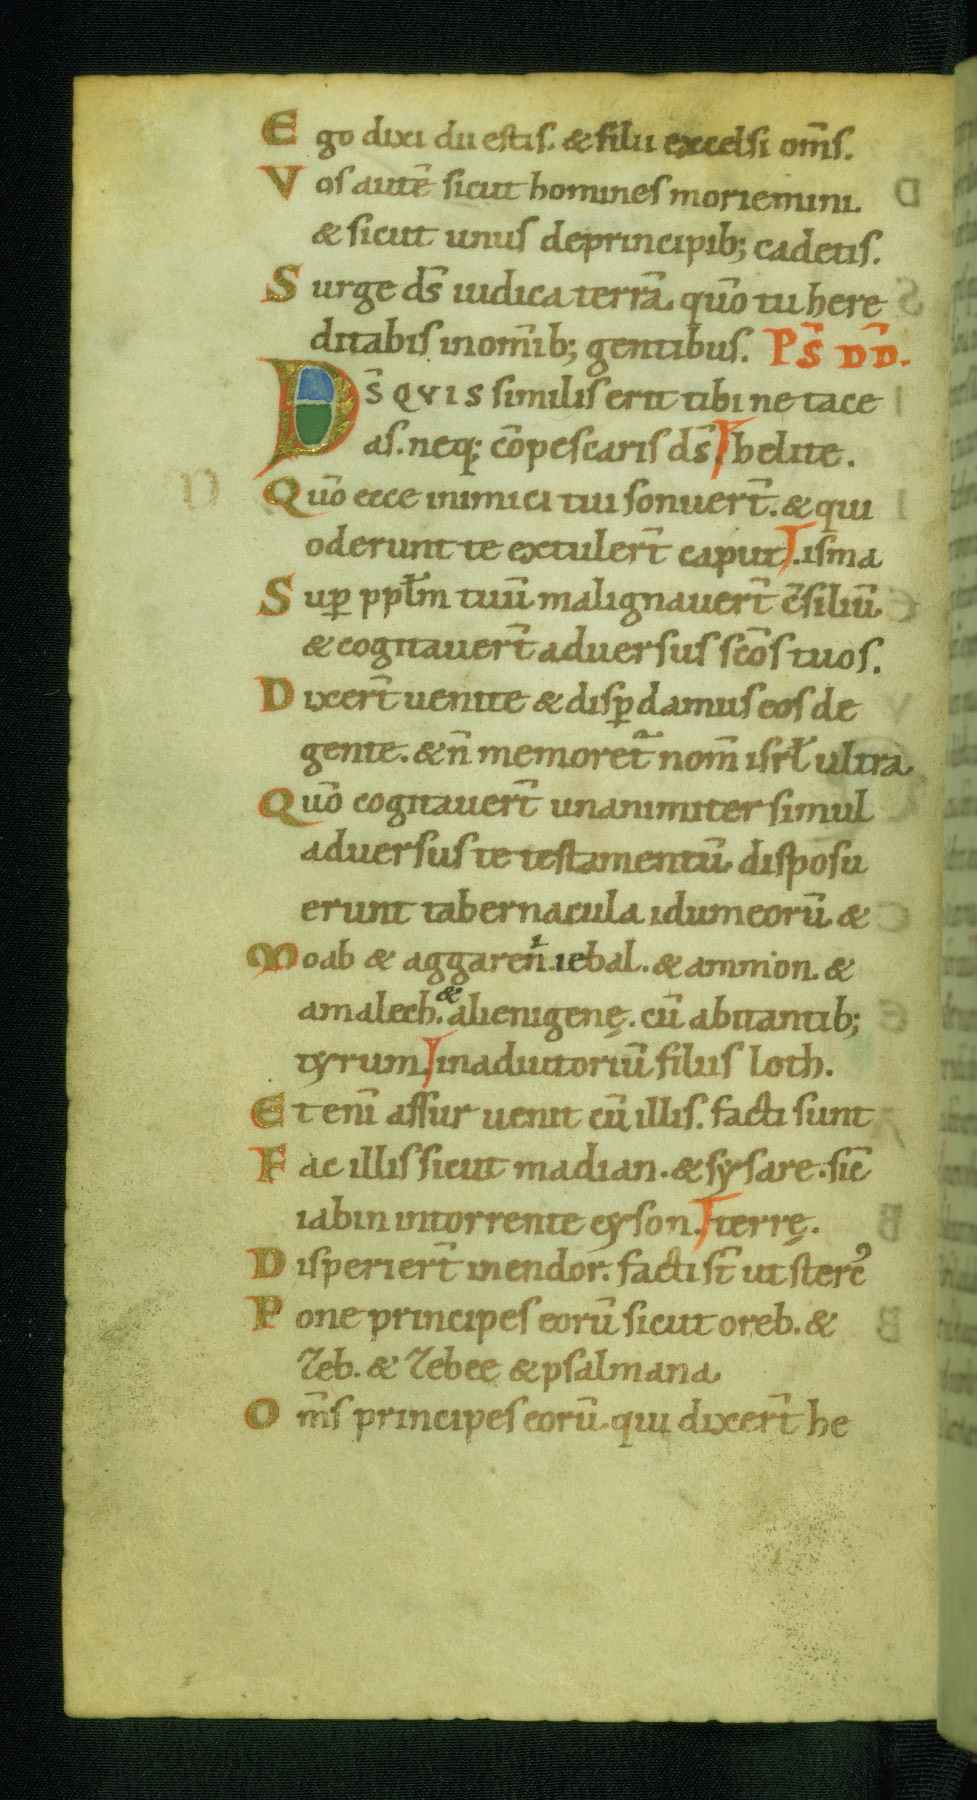 Ego dixi dii estis. & filii excelsi om̄s.
Vos autē sicut homines moriemini.
& sicut unus deprincipib; cadetis.
Surge ds̄ iudica terrā. quō tu here
ditabis inom̄ib; gentibus. Ps̄ DD̄.
Ds̄ QVIS similis erit tibi ne tace
as. neq; cōpescaris ds̄. belite.
Quō ecce inimici tui sonuert̄. & qui
oderunt te extulert̄ caput. isma
Sup̱ pplm̄ tuū malignauert̄ c̄siliū.
& cogitauert̄ aduersus sc̄os tuos.
Dixert̄ uenite & disp̱damus eos de
gente. & n̄ memoret̄ nom̄ isrł ultra.
Quō cogitauert̄ unanimiter simul
aduersus te testamentū. disposu
erunt tabernacula idumeorū &
Moab & aggaren̄ı iebal. & ammon. &
amalech. & alienigenę. cū abitantib;
tyrum. inadiutoriū filiis loth.
Et enī assur uenit cū illis. facti sunt
Fac illis sicut madian. & sysare. sic̄
iabin intorrente cyson. terrę.
Disperiert̄ inendor. facti st̄ ut sterc᾿
Pone principes eorū sicut oreb. &
Zeb. & Zebee & psalmana.
Om̄s principes eorū. qui dixert̄ he